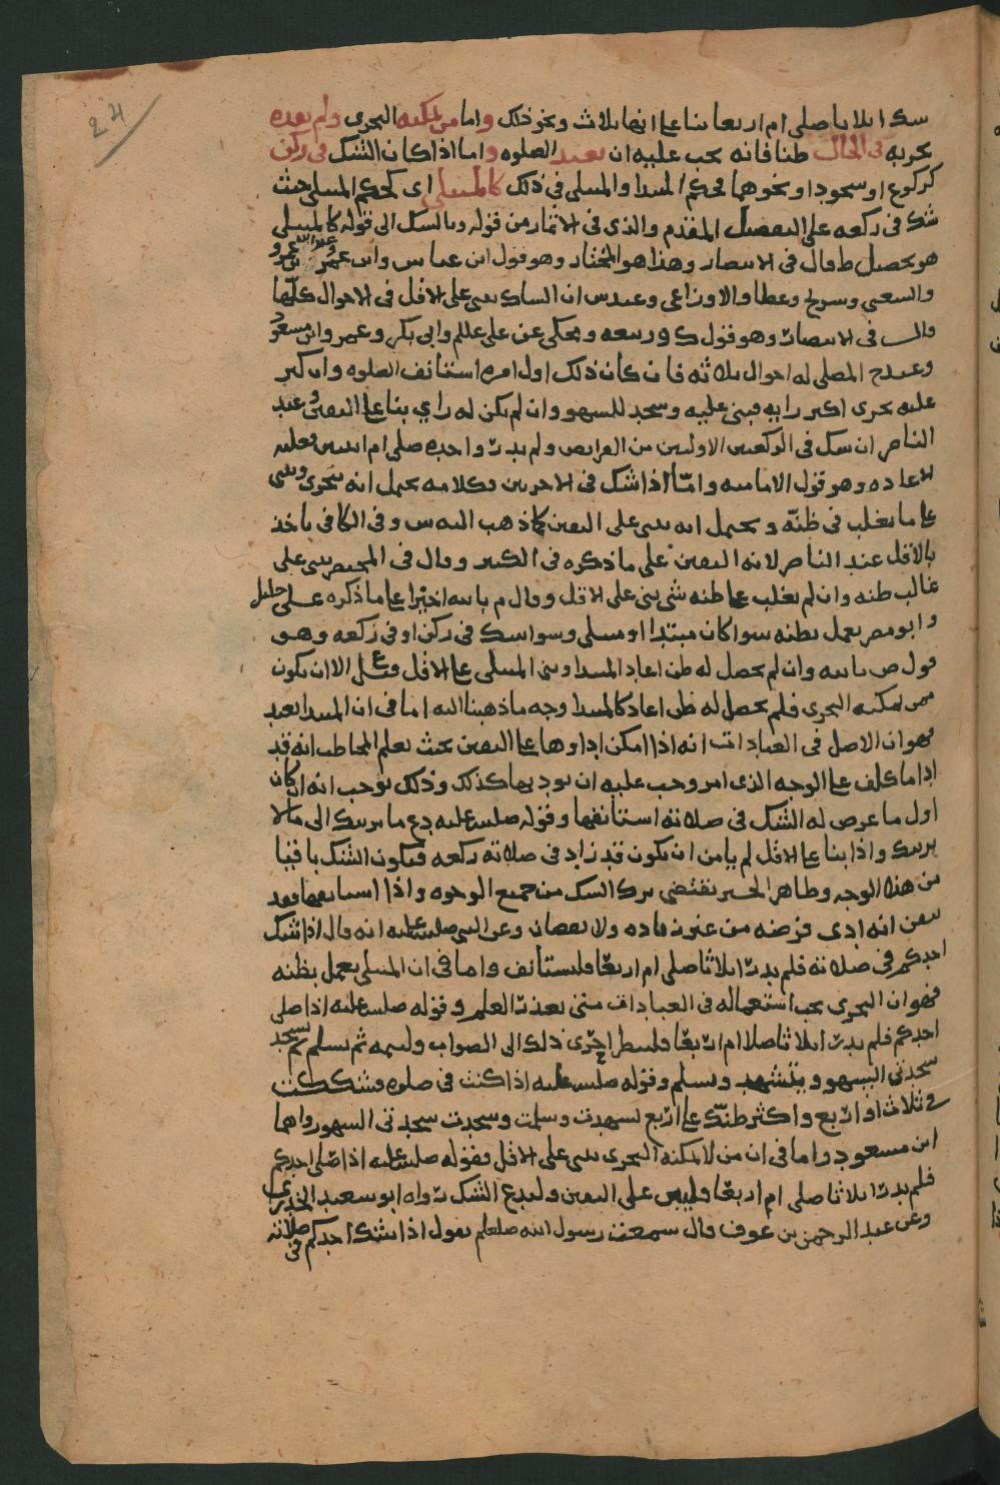 شك اثلاثا صلى ام اربعا بنا على انها ثلاث ونحو ذلك واما من يمكنه التحري ولم يفده
تحريه في الحال ظنا فانه يجب عليه ان يعيد الصلوه واما اذا كان الشك في ركن
كركوع او سجود او نحوهما فحكم المبتدا والمبتلى في ذلك كالمبتلى اي كحكم المبتلى حيث
شك في ركعه على التفصيل المقدم والذي في الاثمار من قوله وبالشك الى قوله كالمبتلى
هو تحصيل ط قال في الانتصار وهذا هو المختار وهو قول ابن عباس وابن عمر
والشعبي وشريح وعطا والاوزاعي وعند س ان الشاك يبني على الاقل في الاحوال كلها
قال في الانتصار وهو قول ك وربيعه ويحكى عن علي علم وابي بكر وعمر وابن مسعود
وعند ح المصلي له احوال ثلاثه فان كان ذلك اول امره استانف الصلوه وان كثر
عليه تحرى اكبر رايه فبنى عليه وسجد للسهو وان لم يكن له راي بنا على اليقين وعند
الناصر ان شك في الركعتين الاولتين من الفرايض ولم يدر واحده صلى ام اثنتين فعليه
الاعاده وهو قول الاماميه واما اذا شك في الاخريين فكلامه يحتمل انه يتحرى ويبني
على ما يغلب في ظنه ويحتمل انه يبني على اليقين كما ذهب اليه س وفي الكافي ياخذ
بالاقل عند الناصر لانه اليقين على ما ذكره في الكبير وقال في المختصر يبني على
غالب ظنه وان لم يغلب على ظنه شي بنى على الاقل وقال م بالله اخيرا على ما ذكره علي خليل
وابو مضر يعمل بظنه سوا كان مبتدا او مبتلى وسوا شك في ركن او في ركعه وهو
قول ص بالله وان لم يحصل له ظن اعاد المبتدا وبنى المبتلى على الاقل الا ان يكون
ممن يمكنه التحري فلم يحصل له ظن اعاد كالمبتدا وجه ما ذهبنا اليه اما في ان المبتدا يعيد
فهو ان الاصل في العبادات انه اذا امكن اداوها على اليقين بحيث يعلم المخاطب انه قد
ادا ما كلف على الوجه الذي امر وجب عليه ان يوديها كذلك وذلك يوجب انه ان كان
اول ما عرض له الشك في صلاته استانفها وقوله صلى عليه دع ما يريبك الى ما لا
يريبك واذا بنا على الاقل لم يامن ان يكون قد زاد في صلاته ركعه فيكون الشك باقيا
من هذا الوجه وظاهر الخبر يقتضي ترك الشك من جميع الوجوه واذا استانفها فقد
تيقن انه ادى فرضه من غير زياده ولا نقصان وعن النبي صلى عليه انه قال اذا شك
احدكم في صلاته فلم يدر اثلاثا صلى ام اربعا فليستانف واما في ان المبتلى يعمل بظنه
فهو ان التحري يجب استعماله في العبادات متى تعذر العلم وقوله صلى عليه اذا صلى
احدكم فلم يدر اثلاثا صلا ام اربعا فلينظر احرى ذلك الى الصواب وليتمه ثم يسلم ثم يسجد
سجدتي السهو ويتشهد ويسلم وقوله صلى عليه اذا كنت في صلوه فشككت
في ثلاث او اربع واكثر ظنك على اربع تشهدت وسلمت وسجدت سجدتي السهو رواهما
ابن مسعود واما في ان من لا يمكنه التحري يبني على الاقل فقوله صلى عليه اذا صلى احدكم
فلم يدر اثلاثا صلى ام اربعا فليبن على اليقين وليدع الشك رواه ابو سعيد الخدري
وعن عبد الرحمن بن عوف قال سمعت رسول الله صلعلم يقول اذا شك احدكم في صلاته